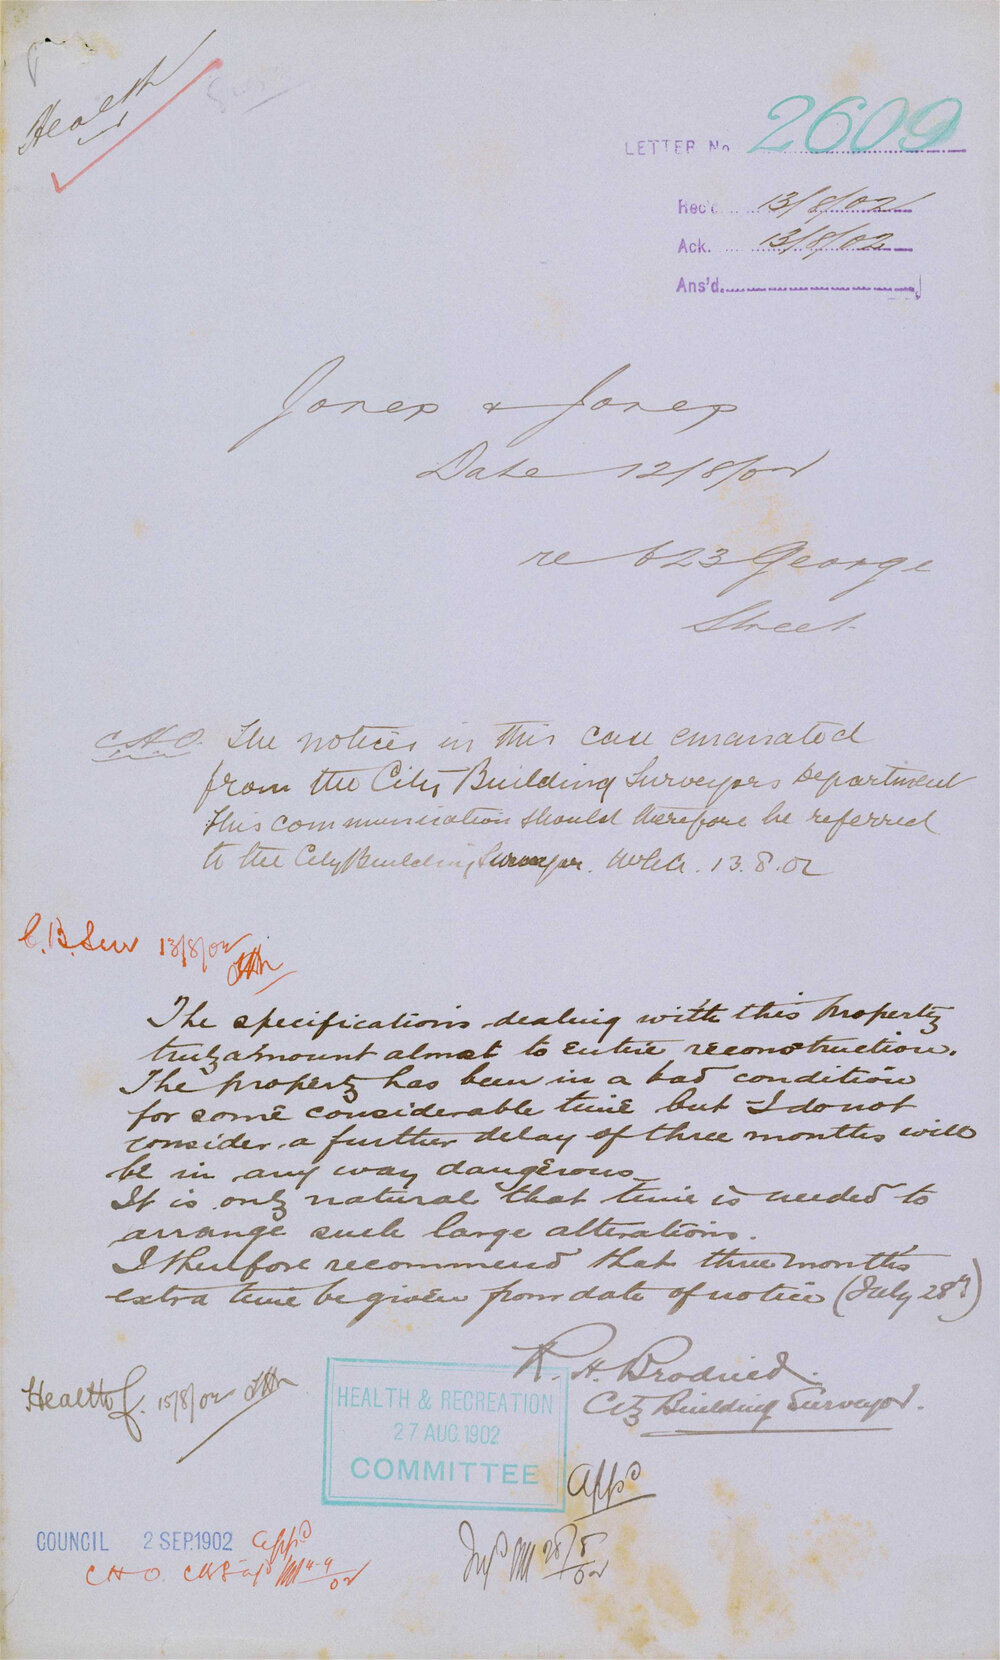 Health
LETTER No 2609
Rec'd 13/8/02
Ack. 13/8/02
Ans'd.
Jones & Jones
Date 12/8/02
re 623 George
Street
C.H.O. The notices in this case emanated
from the City Building Surveyors Department
This communication should therefore be referred
to the City Building Surveyor. 13.8.02
C.B. Sur 13/8/02
The specifications dealing with this property
truly amount almost to entire reconstruction.
The property has been in a bad condition
for some considerable time but I do not
consider a further delay of three months will
be in any way dangerous
It is only natural that time is needed to
arrange such large alterations.
I therefore recommend that three months
extra time be given from date of notice (July 28th)
R. H. Brodrick.
City Building Surveyor.
Health C. 15/8/02
HEALTH & RECREATION
27 AUG. 1902
COMMITTEE
Appd
28/8/02
COUNCIL 2 SEP.1902 appd
C H O. 4-9/02